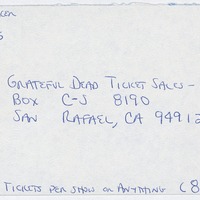 GRATEFUL DEAD TICKET SALES -
BOX C-S 8190
SAN RAFAEL, CA 94912
TICKETS PER SHOW OR ANYTHING (8